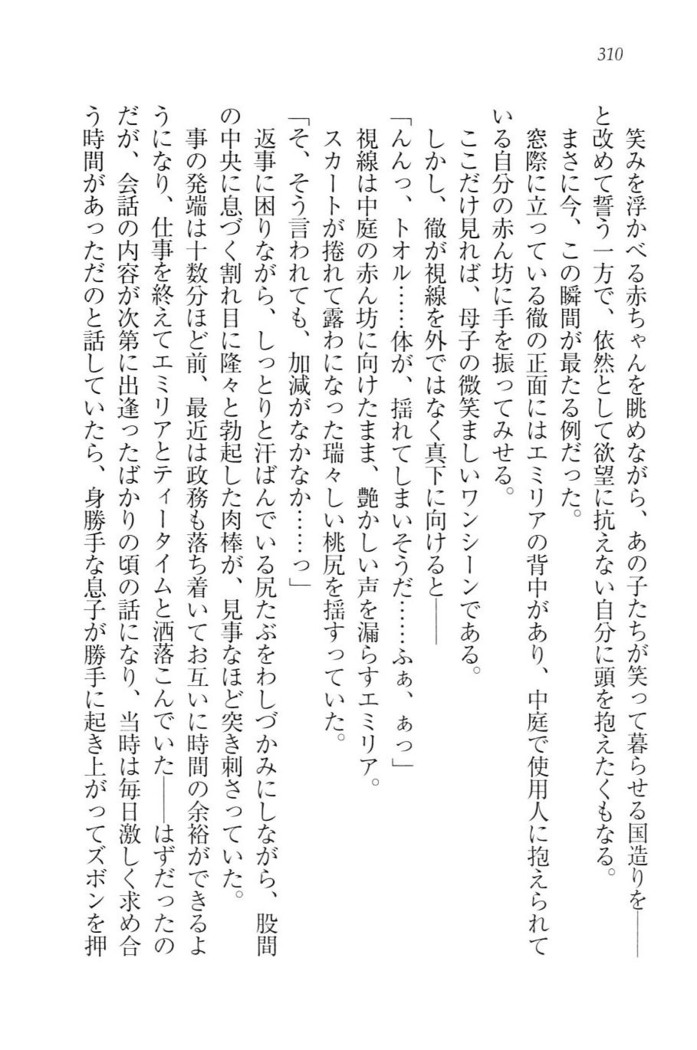 310
笑みを浮かべる赤ちゃんを眺めながら、あの子たちが笑って暮らせる国造りを――
と改めて誓う一方で、依然として欲望に抗えない自分に頭を抱えたくもなる。
まさに今、この瞬間が最たる例だった。
窓際に立っている徹の正面にはエミリアの背中があり、中庭で使用人に抱えられて
いる自分の赤ん坊に手を振ってみせる。
ここだけ見れば、母子の微笑ましいワンシーンである。
しかし、徹が視線を外ではなく真下に向けると――
「んんっ、トオル……体が、揺れてしまいそうだ……ふぁ、ぁっ」
視線は中庭の赤ん坊に向けたまま、艶かしい声を漏らすエミリア。
スカートが捲れて露わになった瑞々しい桃尻を揺すっていた。
「そ、そう言われても、加減がなかなか……っ」
返事に困りながら、しっとりと汗ばんでいる尻たぶをわしづかみにしながら、股間
の中央に息づく割れ目に隆々と勃起した肉棒が、見事なほど突き刺さっていた。
事の発端は十数分ほど前、最近は政務も落ち着いてお互いに時間の余裕ができるよ
うになり、仕事を終えてエミリアとティータイムと洒落こんでいた――はずだったの
だが、会話の内容が次第に出逢ったばかりの頃の話になり、当時は毎日激しく求め合
う時間があっただのと話していたら、身勝手な息子が勝手に起き上がってズボンを押